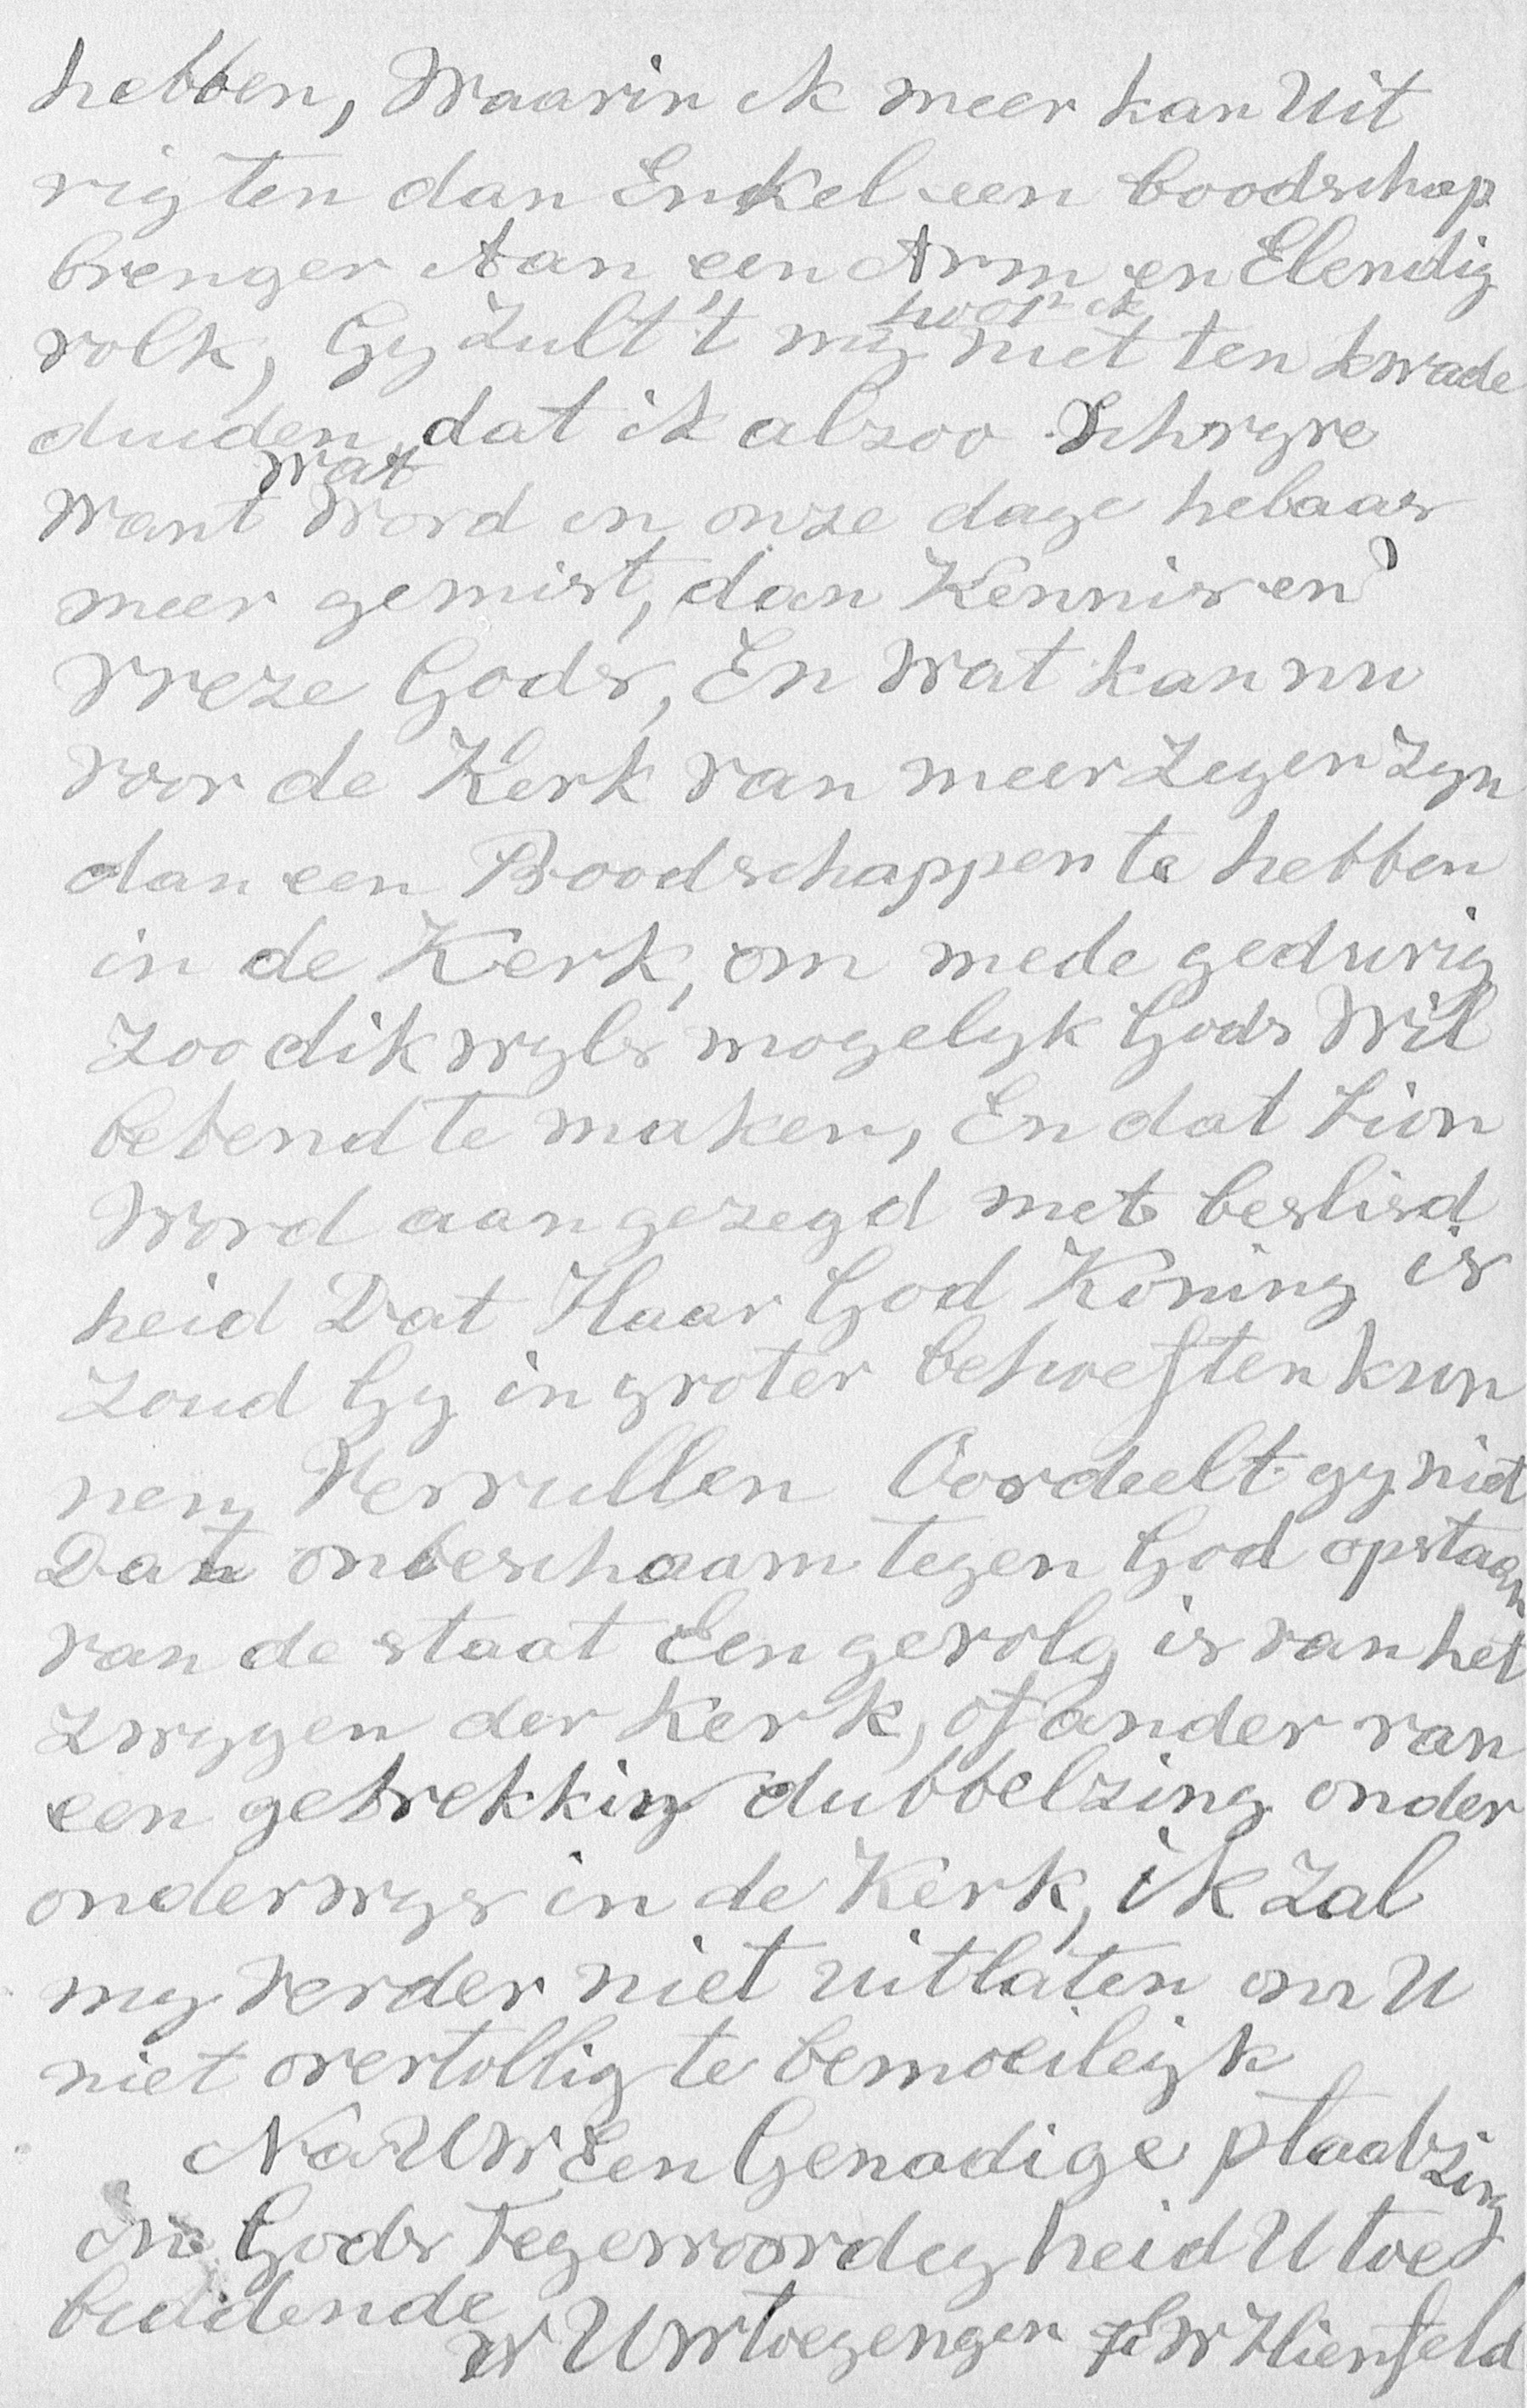 hebben, Waarin ik meer kan Uit
rigten dan Enkel een boodschap
brenger Aan een Arm en Elendig
volk, Gy Zult 't my hoop ik niet ten kwade
duiden, dat ik alzoo Schryve
Want wat Word in onze dage helaas
meer gemist, dan Kennis en
Vreze Gods, En wat kan nu
voor de Kerk van meer Zegen Zyn
dan een Boodschappen te hebben
in de Kerk, om mede gedurig
Zoo dikwyls mogelyk Gods Wil
bekend te maken, En dat Zion
Word aangezegd met beslisd
heid Dat Haar God Koning is
Zoud Gy in groter behoeften kun
nen Vervullen Oordeelt gy niet
Dat onbeschaam tegen God opstaan
van de staat Een gevolg is van het
Zwygen der Kerk, of ander van
een gebrekking dubbelzing onder
onderwys in de Kerk, ik Zal
my verder niet uitlaten om U
niet overtollig te bemoeileyk
Na UW Een Genadige plaatzing
in Gods Tegenwoordigheid U toe
biddende
UW toegenegen W Hienfeld